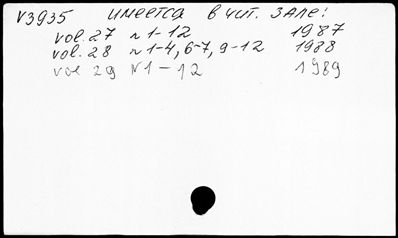 V3935 имеется в чит. зале:
vol. 27 N 1-12 1987
vol. 28 N 1-4, 6-7, 9-12 1988
vol 29 N1-12 1989